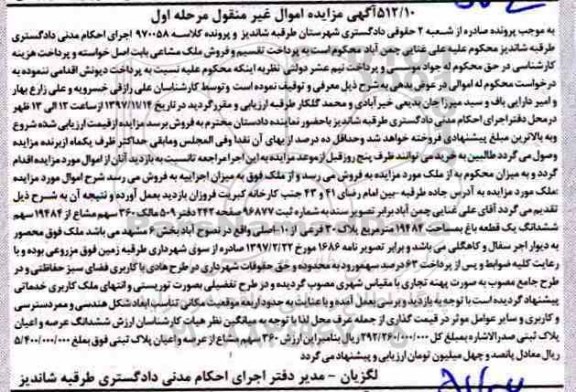 ۵۱۲/۱۰آگهی مزایده اموال غیر منقول مرحله اول
به موجب پرونده صادره از شعبه ۲ حقوقی دادگستری شهرستان طرقبه شاندیز و پرونده کلاسه ۹۷۰۰۵۸ اجرای احکام مدنی دادگستری
طرقبه شاندیز محکوم علیه علی غنایی چمن آباد محکوم است به پرداخت تقسیم و فروش ملک مشاعی بابت اصل خواسته و پرداخت هزینه
کارشناسی در حق محکوم له جواد موسنی و پرداخت نیم عشر دولتی نظربه اینکه محکوم علیه نسبت به پرداخت دیونش اقدامی ننموده به
درخواست محکوم له اموالی در عوض بدهی به شرح ذیل معرفی و توقیف نموده است و توسط کارشناسان علی رازقی خسرویه و علی زارع بهار
و امیر دارایی باف و سید میرزا جان بدیعی خیر آبادی و محمد گلکار طرقبه ارزیابی و مقررگردید در تاریخ ۱۳۹۷/۱۱/۱۴ ازساعت ۱۲ الی ۱۳ ظهر
در محل دفتراجرای احکام مدنی دادگستری طرقبه شاندیز باحضور نماینده دادستان محترم به فروش برسد مزایده ازقیمت ارزیابی شده شروع
وبه بالاترین مبلغ پیشنهادی فروخته خواهد شد وحداقل ده درصد از بهای آن نقدا وفی المجلس ومابقی حداکثر ظرف یکماه ازبرنده مزایده
وصول می گردد طالبین به خرید می توانند ظرف پنج روزقبل ازموعد مزایده به این اجرا مراجعه تانسبت به بازدید آنان از اموال مورد مزایده اقدام
گردد و به میزان محکوم به از ملک مورد مزایده به فروش می رسد و از ملک فوق به میزان اجراییه به فروش می رسد شرح اموال مورد مزایده
:ملک مورد مزایده به آدرس جاده طرقبه -بین امام رضای ۴۱ و ۴۳ جنب کارخانه کبریت فروزان بازدید بعمل آورده و نتیجه آن به شرح ذیل
تقدیم می گردد آقای علی غنایی چمن آباد برابر تصویر سند به شماره ثبت ۹۶۸۷۷ صفحه ۲۴۲ دفتر ۵۰۹ مالک ۳۶۰ سهم مشاع از ۱۹۴۸۴ سهم
ششدانگ یک قطعه باغ بمساحت ۱۹۴۸۲ مترمربع پلاک ۳۰ فرعی از ۱۰-اصلی واقع در نصوح آباد بخش ۶ مشهد می باشد ملک فوق محصور
به دیوار اجر سفال و کاهگلی می باشد و برابر تصویر نامه ۱۶۸۶ مورخ ۱۳۹۷/۲/۲۲ صادره از سوی شهرداری طرقبه زمین فوق مزروعی بوده و با
رعایت کلیه ضوابط و پس از پرداخت ۶۳ درصد سهم ورود به محدوده و حق حقوقات شهرداری در طرح هادی با کاربری فضای سبز حفاظتی و در
طرح جامع مصوب به صورت پهنه تجاری با مقیاس شهری مصوب گردیده و در طرح تفصیلی بصورت توریستی و انتهای ملک کاربری خدماتی
پیشنهاد گردیده است با توجه به بازدید و بررسی بعمل آمده و با عنایت به حدود اربعه موقعیت مکانی تناسب ابعاد شکل هندسی و ممر دسترسی
و کاربری و سایر عوامل موثر در قیمت گذاری از جمله عرف محل لذا با توجه به میانگین نظر هیات کارشناسان ارزش ششدانگ عرصه و اعیان
پلاک ثبتی صدرالاشاره بمبلغ کل ۲۹۲/۲۶۰/۰۰۰/۰۰۰ ریال بنامبراین ارزش ۳۶۰ سهم مشاع از عرصه و اعیان پلاک ثبتی فوق بمبلغ ۵/۴۰۰/۰۰۰/۰۰۰
ریال معادل پانصد و چهل میلیون تومان ارزیابی و پیشنهاد می گردد
لگزیان - مدیر دفتر اجرای احکام مدنی دادگستری طرقبه شاندیز